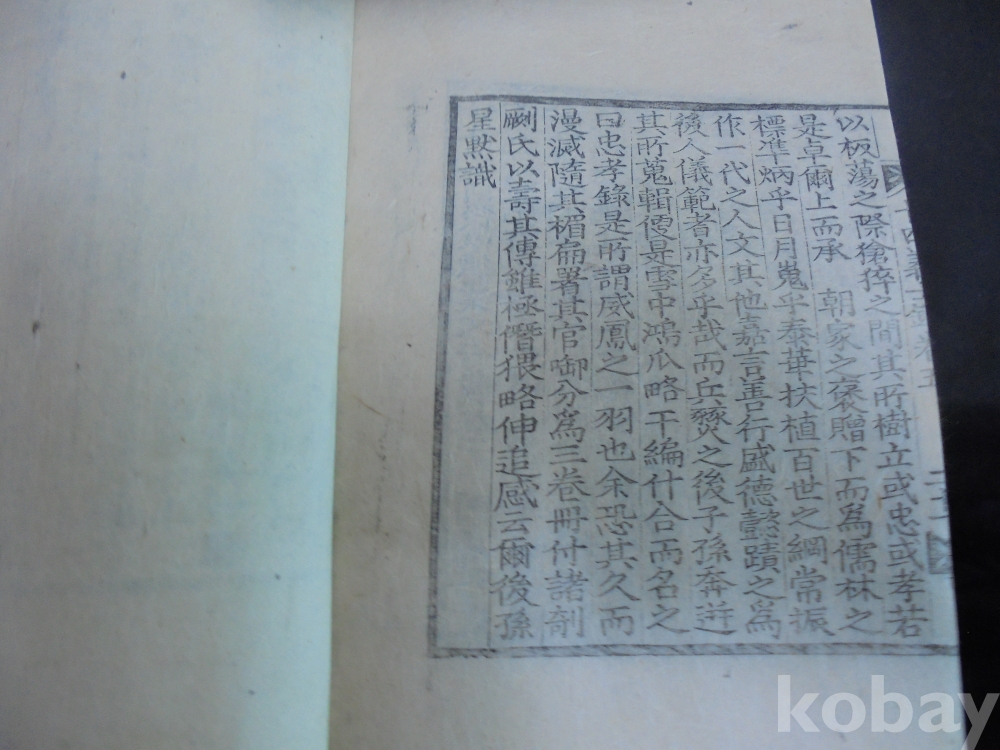 以板蕩之際蒼猝之間其所樹立或忠或孝若
是卓爾上而承 朝家之褒贈下而爲儒林之
標準炳乎日月嵬乎泰華扶植百世之綱常振
作一代之人文其他嘉言善行盛德懿蹟之爲
後人儀範者亦多乎哉而兵燹之後子孫奔迸
其所蒐輯僾是雪中鴻瓜略干編什合而名之
曰忠孝錄是所謂威鳳之一羽也余恐其久而
漫滅隨其楣扁署其官啣分爲三卷冊付諸剞
劂氏以壽其傳雖極僭猥略伸追感云爾後孫
星默識
kobay